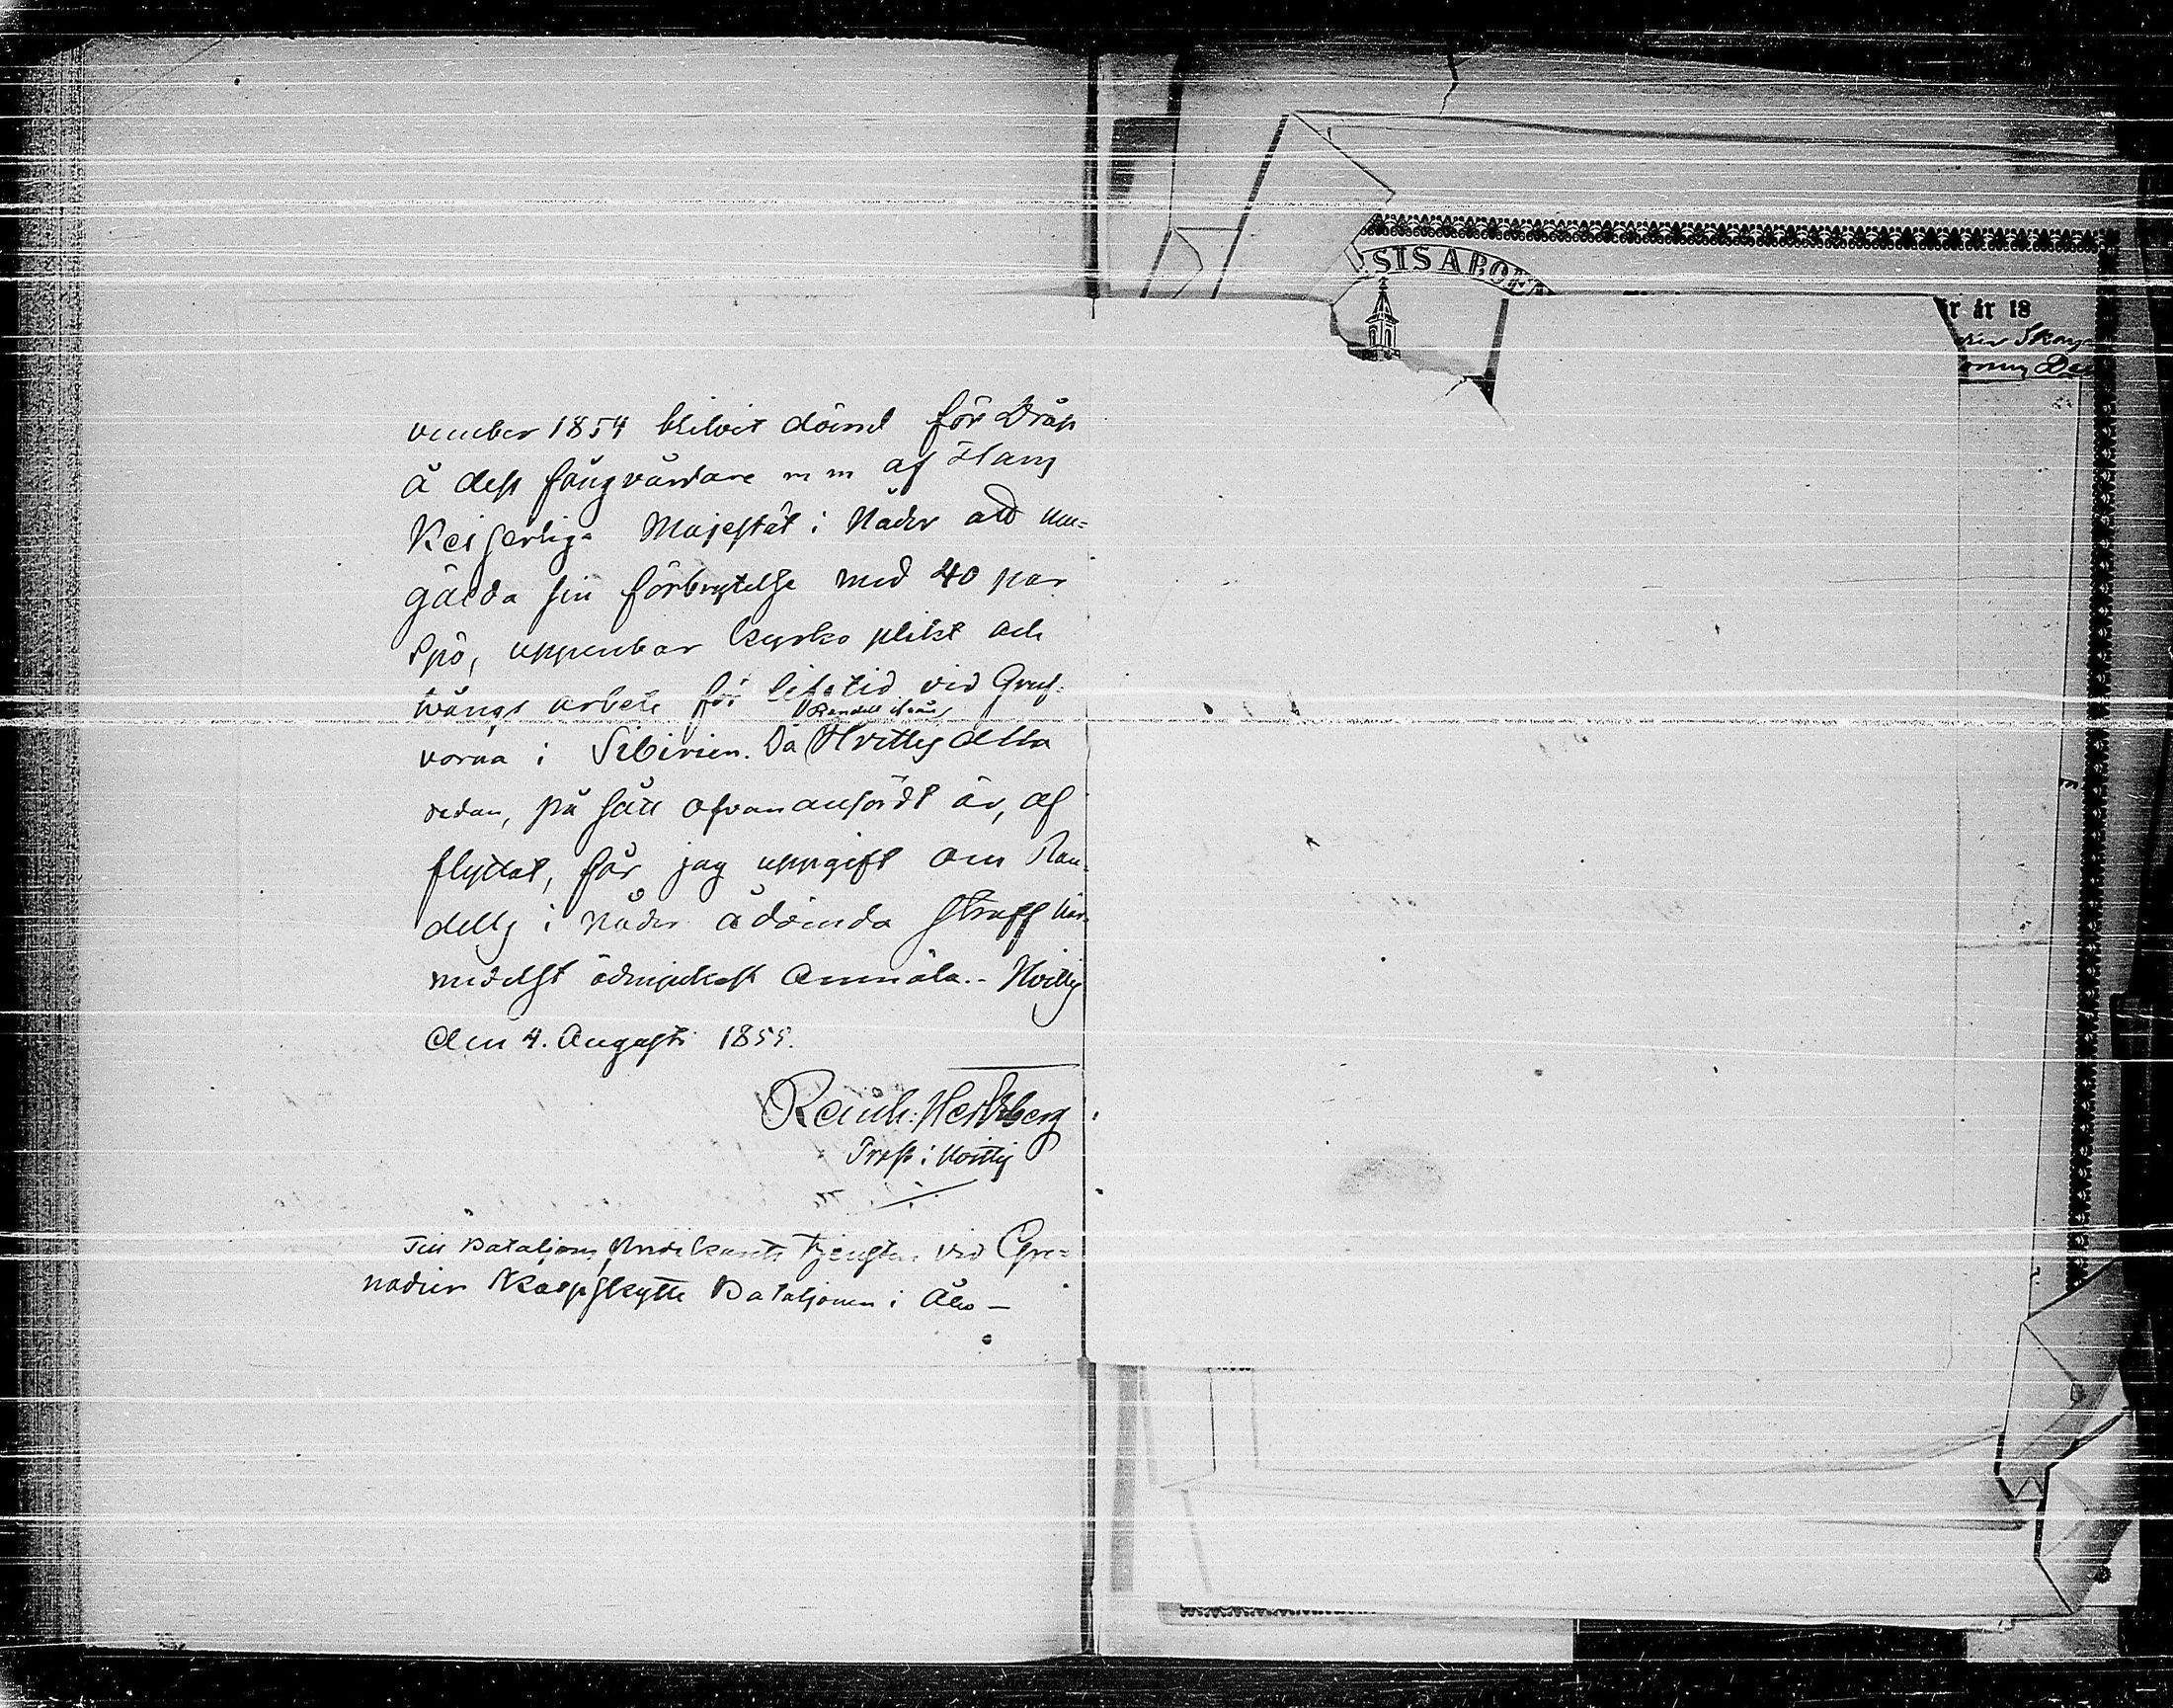 vember 1854 blifvit dömd för Dråp
å dess fångvårdare m m af Hans
Keiserliga Majestät i Nåder att um=
gälda sin förbrytelse med 40 par
Spö, uppenbar kyrko plikt och
tvångs arbete för lifstid vid Gruf=
Randell ifrån
vorna i Sibirien. Då Hvittis Allar
redan, på sätt ofvananfördt är, af
flyttat, får jag uppgift om Ran-
dells i Nåder ådömda straff här-
medelst ödmjukast anmäla. - Hvittis
den 4. Augusti 1855.
Reinh: Hertzberg
Prost i Hvittis
Till Bataljons Predikants tjensten vid Gre=
nadier Skarpskytte Bataljonen i Åbo -
SIS ABOEN
r år 18